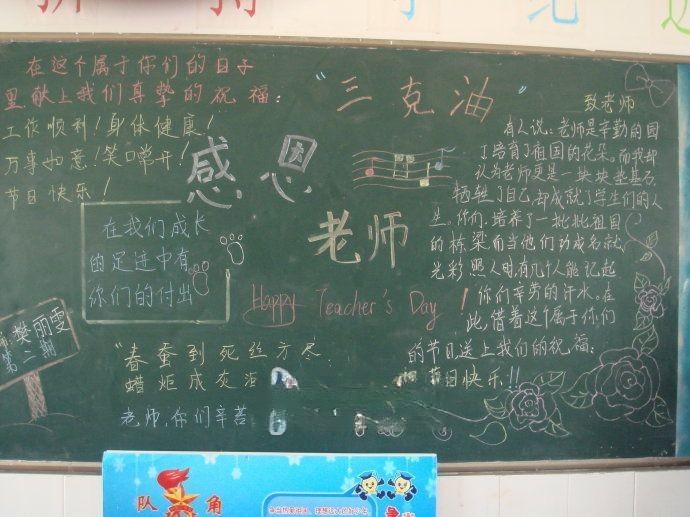 在这个属于你们的日子
里献上我们真挚的祝福:
工作顺利!身体健康!
万事如意!笑口常开!
节日快乐!
感恩
老师
"三克油"
在我们成长
的足迹中有
你们的付出
Happy Teacher's Day!
樊丽雯
第二期
"春蚕到死丝方尽
蜡炬成灰泪
老师,你们辛苦
致老师
有人说:老师是辛勤的园
丁培育了祖国的花朵。而我却
认为老师更是一块块垫基石,
牺牲了自己,却成就了学生们的人
生。你们,培养了一批批祖国
的栋梁而当他们功成名就,
光彩照人时,有几个人能记起
你们辛劳的汗水。在
此,借着这个属于你们
的节日送上我们的祝福:
节日快乐!!
队 角